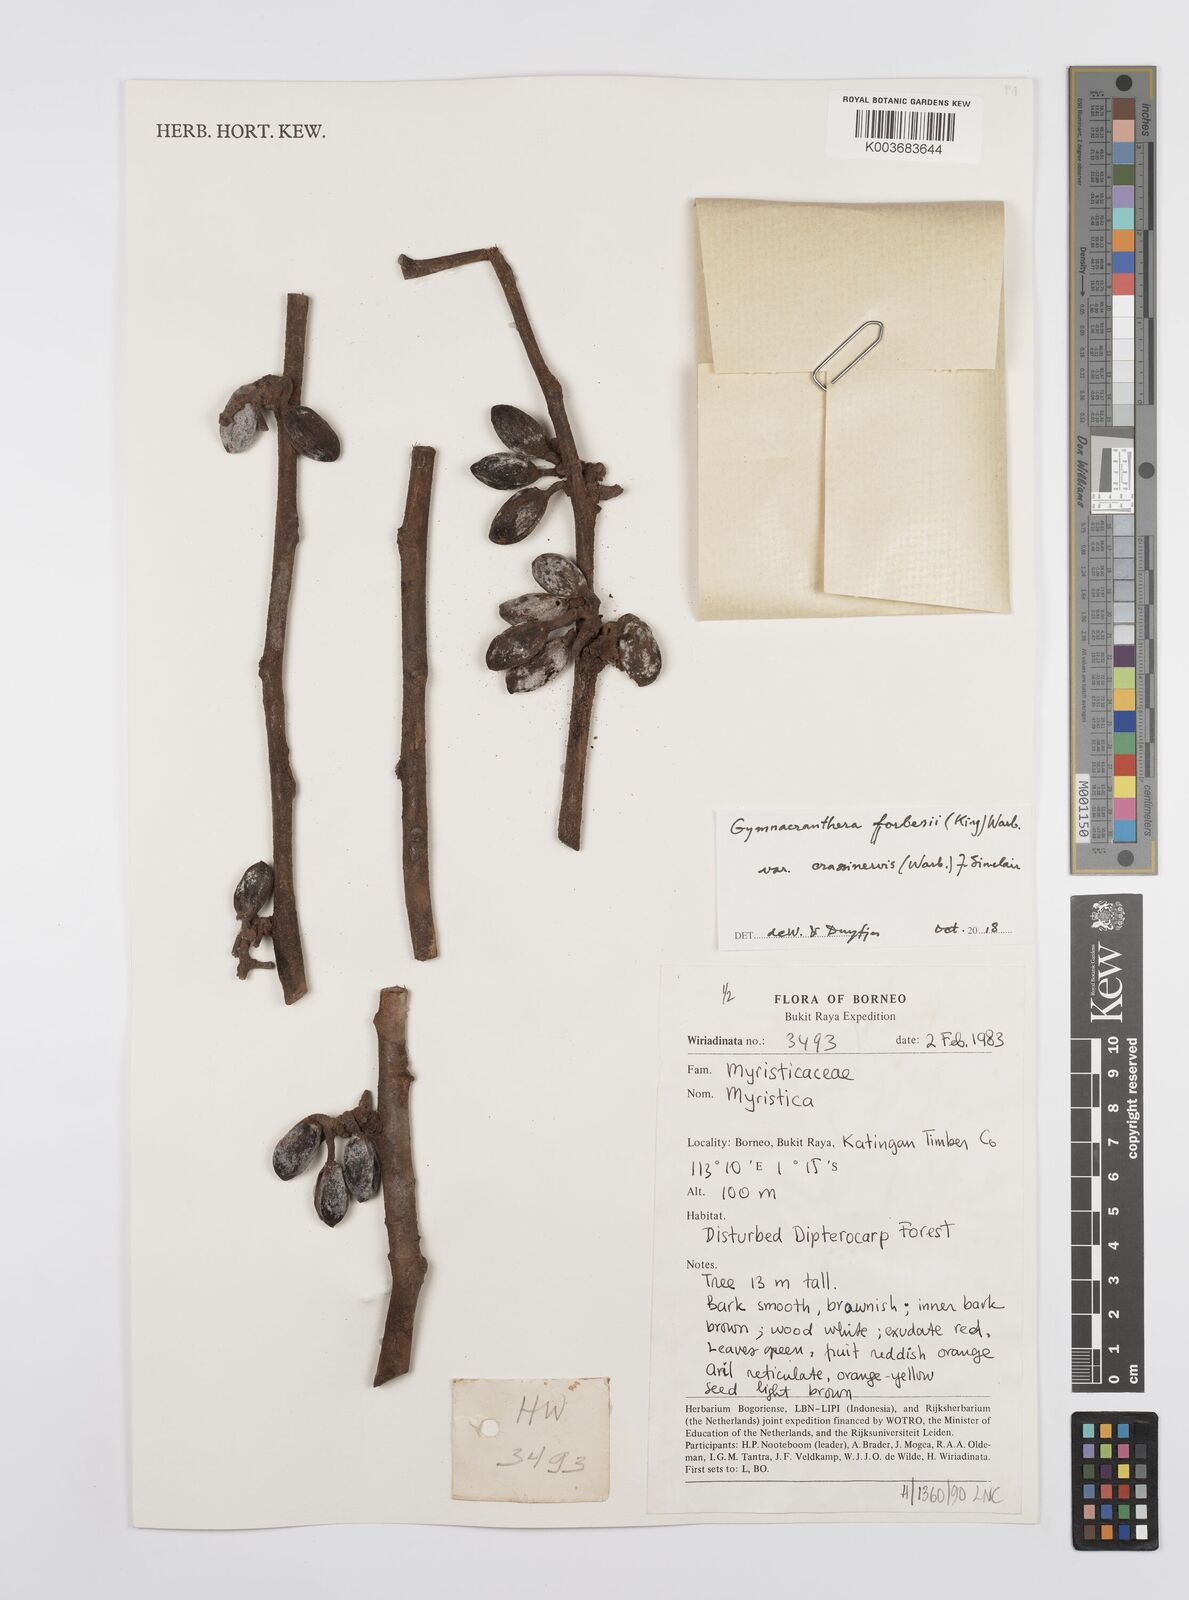 HERB. HORT. KEW.
ROYAL BOTANIC GARDENS KEW
K003683644
Gymnacranthera forbesii (King) Warb.
var. crassinervis (Warb.) J. Sinclair
DET. deW. & Duyfjes Oct. 2018
1/2
FLORA OF BORNEO
Bukit Raya Expedition
Wiriadinata no.: 3493 date: 2 Feb. 1983
Fam. Myristicaceae
Nom. Myristica
Locality: Borneo, Bukit Raya, Katingan Timber Co
113°10'E 1°15'S
Alt. 100 m
Habitat.
Disturbed Dipterocarp Forest
Notes.
Tree 13 m tall.
Bark smooth, brownish; inner bark
brown; wood white; exudate red.
Leaves green, fruit reddish orange
Aril reticulate, orange-yellow
seed light brown
Herbarium Bogoriense, LBN-LIPI (Indonesia), and Rijksherbarium
(the Netherlands) joint expedition financed by WOTRO, the Minister of
Education of the Netherlands, and the Rijksuniversiteit Leiden.
Participants: H.P. Nooteboom (leader), A. Brader, J. Mogea, R.A.A. Olde-
man, I.G.M. Tantra, J.F. Veldkamp, W.J.J.O. de Wilde, H. Wiriadinata.
First sets to: L, BO.
H/1360/90 LNC
HW
3493
inches
Density
Don Williams
M001150
centimeters
Royal Botanic Gardens
Kew
0 1 2 3 4 5 6 7 8 9 10
cm
copyright reserved